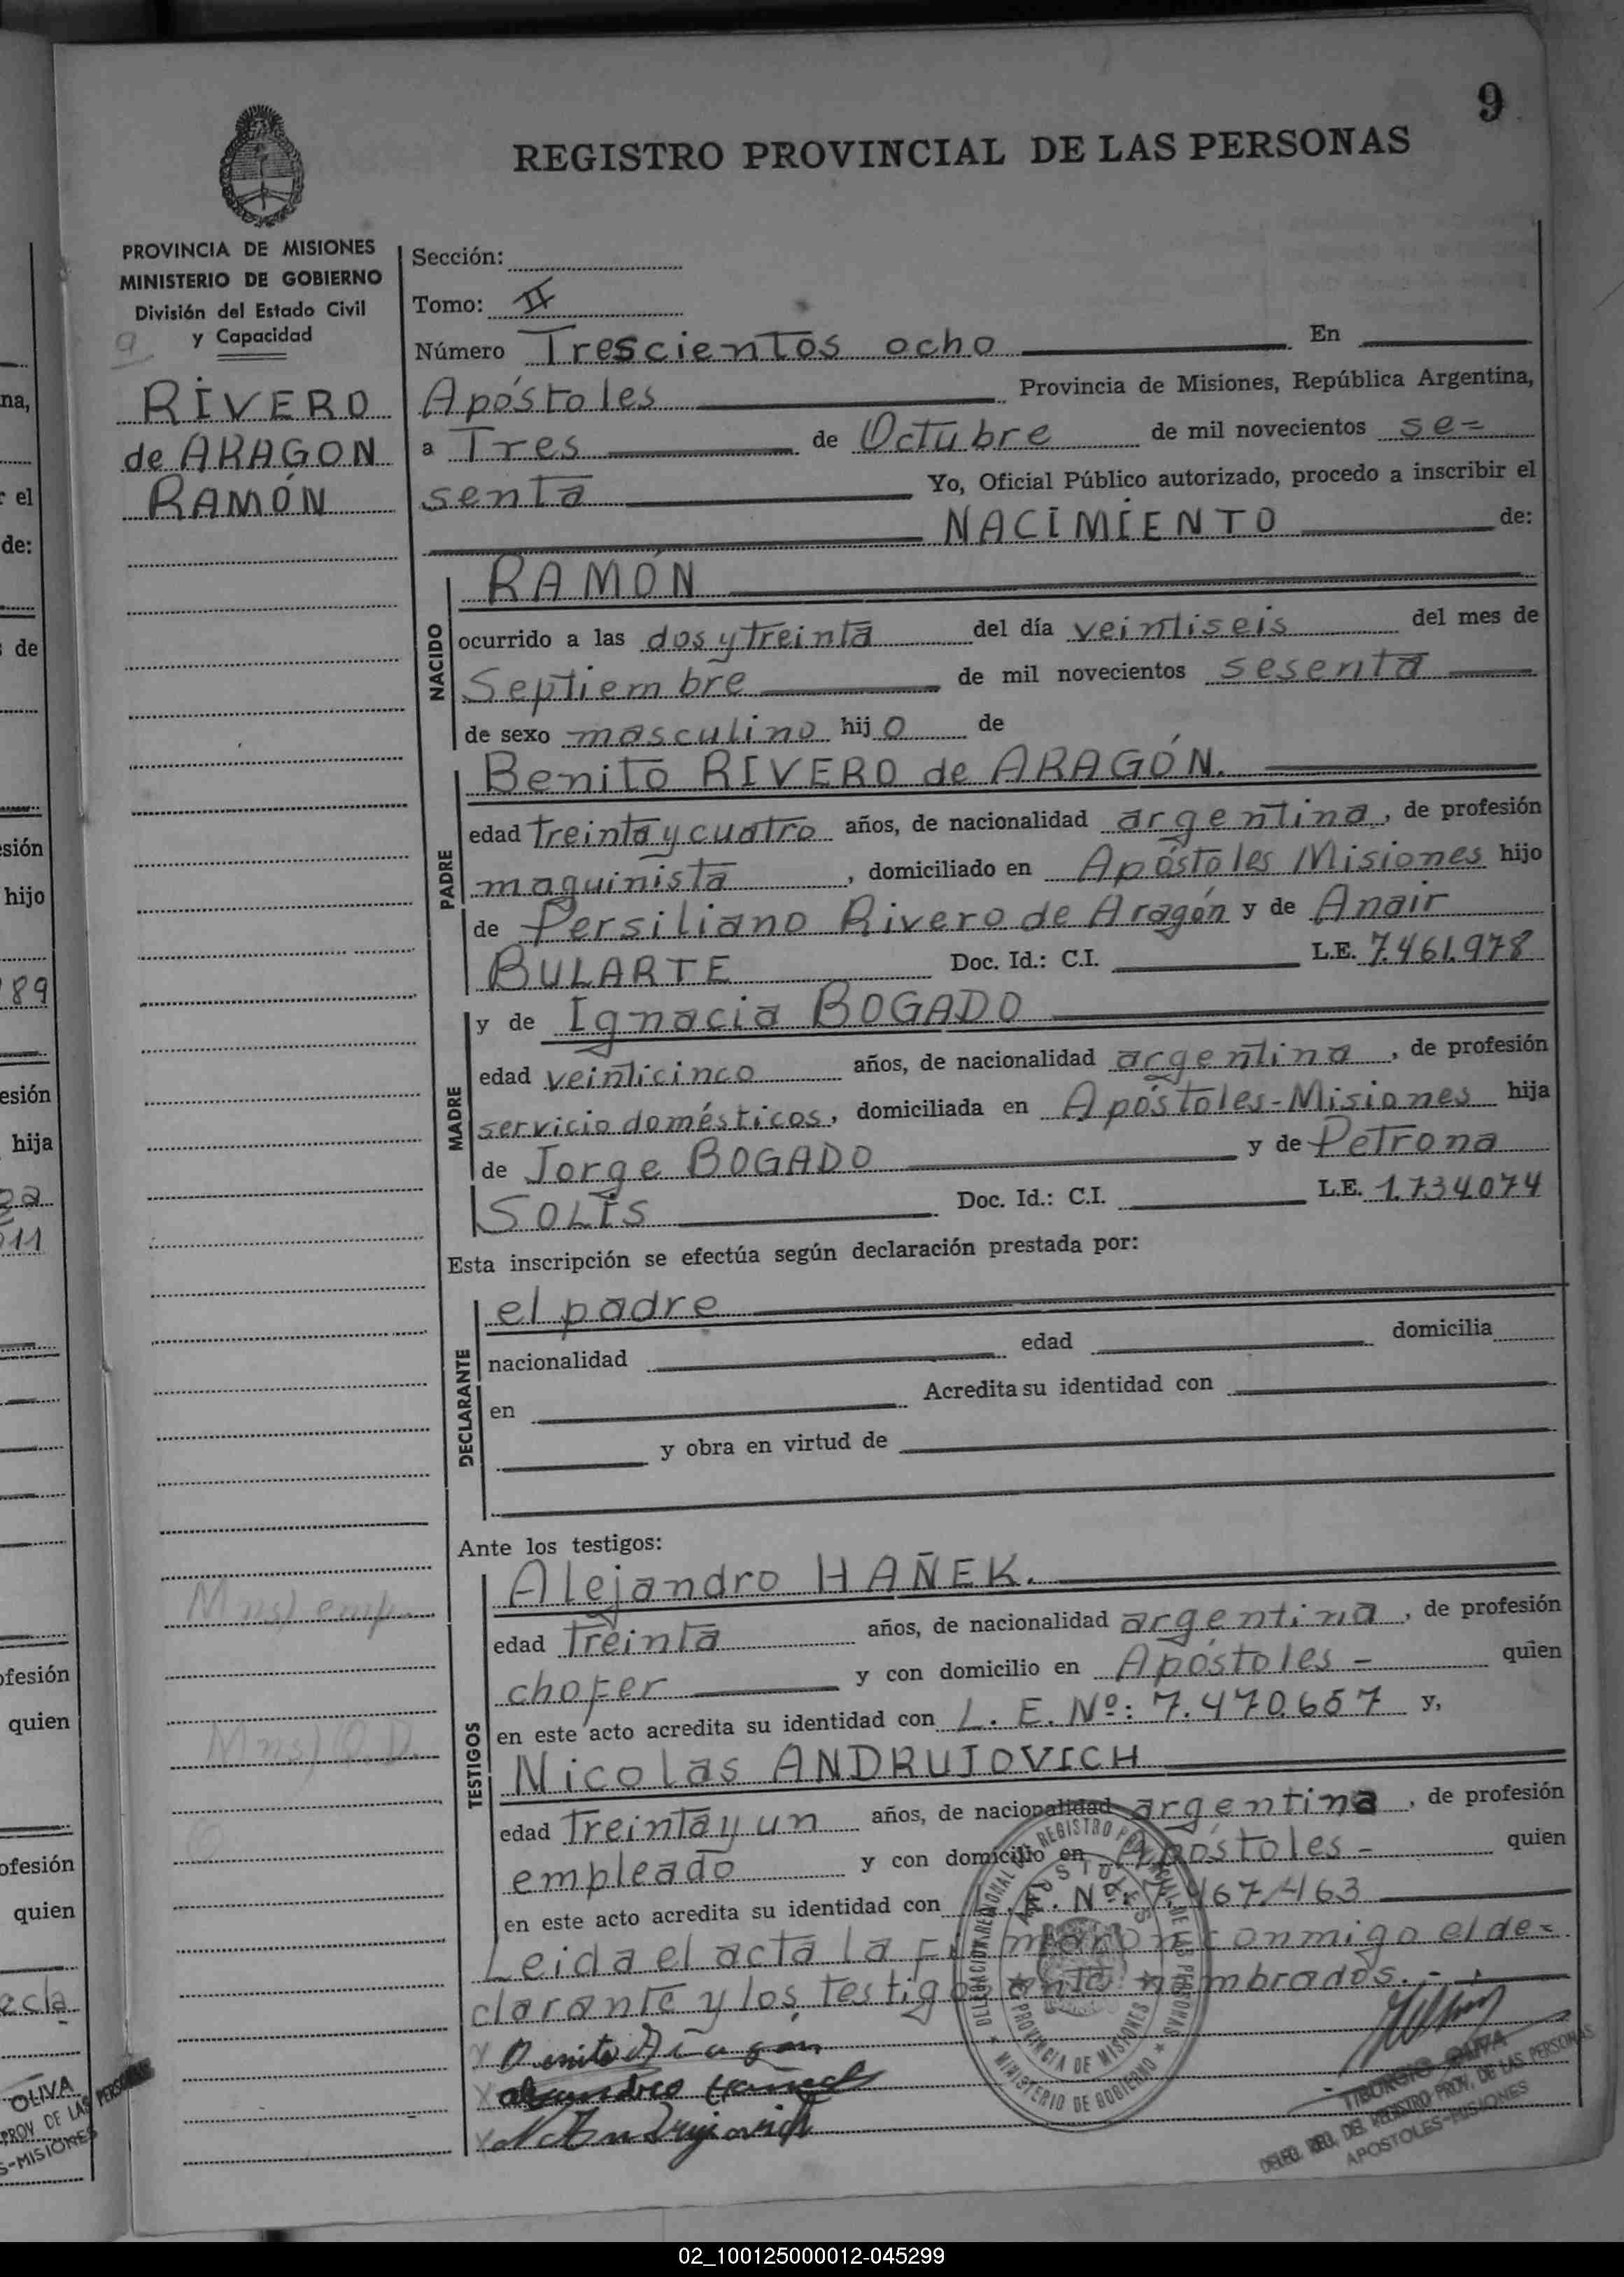 9
REGISTRO PROVINCIAL DE LAS PERSONAS
PROVINCIA DE MISIONES
MINISTERIO DE GOBIERNO
División del Estado Civil
y Capacidad
9
RIVERO
de ARAGON
RAMÓN
Sección:
Tomo: II
Número Trescientos ocho En
Apóstoles Provincia de Misiones, República Argentina,
a Tres de Octubre de mil novecientos se=
senta Yo, Oficial Público autorizado, procedo a inscribir el
NACIMIENTO de:
NACIDO
RAMÓN
ocurrido a las dos y treinta del día veintiseis del mes de
Septiembre de mil novecientos sesenta
de sexo masculino hijo de
PADRE
Benito RIVERO de ARAGÓN.
edad treinta y cuatro años, de nacionalidad argentina, de profesión
maquinista, domiciliado en Apóstoles Misiones hijo
de Persiliano Rivero de Aragón y de Anair
BULARTE Doc. Id.: C.I. L.E. 7.461.978
MADRE
y de Ignacia BOGADO
edad veinticinco años, de nacionalidad argentina, de profesión
servicio domésticos, domiciliada en Apóstoles-Misiones hija
de Jorge BOGADO y de Petrona
SOLIS Doc. Id.: C.I. L.E. 1.734.074
Esta inscripción se efectúa según declaración prestada por:
DECLARANTE
el padre
nacionalidad edad domicilia
en Acredita su identidad con
y obra en virtud de
Ante los testigos:
TESTIGOS
Alejandro HAÑEK.
edad treinta años, de nacionalidad argentina, de profesión
chofer y con domicilio en Apóstoles - quien
en este acto acredita su identidad con L. E. Nº: 7.470.657 y,
Nicolas ANDRUJOVICH
edad treinta y un años, de nacionalidad argentina, de profesión
empleado y con domicilio en Apóstoles - quien
en este acto acredita su identidad con Nº: 7.467.463
Leida el acta la firmaron conmigo el de=
clarante y los testigos ante nombrados.-
DELEGACION REGIONAL DE REGISTRO PROVINCIAL DE LAS PERSONAS
APOSTOLES
PROVINCIA DE MISIONES
MINISTERIO DE GOBIERNO
Benito Aragón
Alejandro Hañek
N. Andrujovich
TIBURCIO OLIVA
DELEG. REG. DEL REGISTRO PROV. DE LAS PERSONAS
APOSTOLES-MISIONES
na,
el
de:
de
sión
hijo
89
esión
hija
11
ofesión
quien
ofesión
quien
ecla
OLIVA
PROV. DE LAS PERSONAS
S-MISIONES
02_100125000012-045299